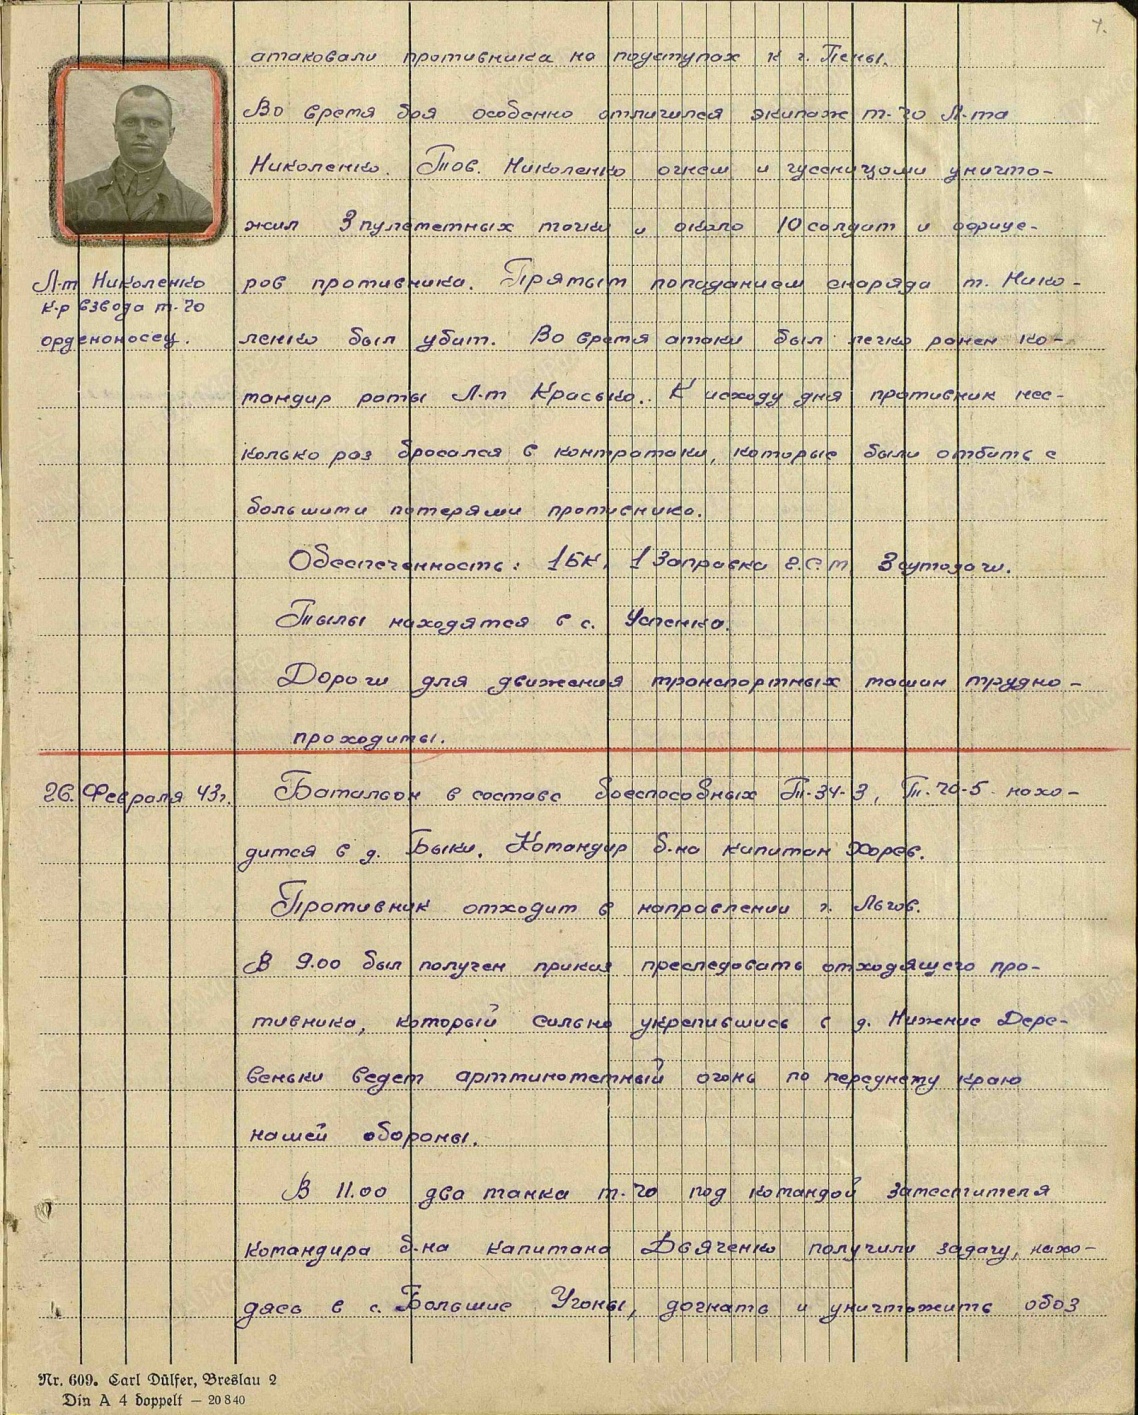 7.
атаковали противника на подступах к г. Пены.
Во время боя особенно отличился экипаж т-70 Л-та
Николенко. Тов. Николенко огнем и гусеницами уничто-
жил 3 пулеметных точки и около 10 солдат и офице-
Л-т Николенко
к-р взвода т-70
орденоносец.
ров противника. Прямым попаданием снаряда т. Нико-
ленко был убит. Во время атаки был легко ранен ко-
мандир роты Л-т Красько. К исходу дня противник нес-
колько раз бросался в контратаки, которые были отбиты с
большими потерями противника.
Обеспеченность: 1 БК, 1 заправка г.с.м 3 сутодачи.
Тылы находятся в с. Успенка.
Дороги для движения транспортных машин трудно-
проходимы.
26. Февраля 43г. Батальон в составе боеспособных Т-34-3, Т-70-5 нахо-
дится в д. Быки. Командир б-на капитан Хорев.
Противник отходит в направлении г. Льгов.
В 9.00 был получен приказ преследовать отходящего про-
тивника, который сильно укрепившись в д. Нижние Дере-
веньки ведет артминометный огонь по переднему краю
нашей обороны.
В 11.00 два танка т-70 под командой заместителя
командира б-на капитана Дьяченко получили задачу, нахо-
дясь в с. Большие Угоны, догнать и уничтожить обоз
Nr. 609. Carl Dülfer, Breslau 2
Din A 4 doppelt — 20840